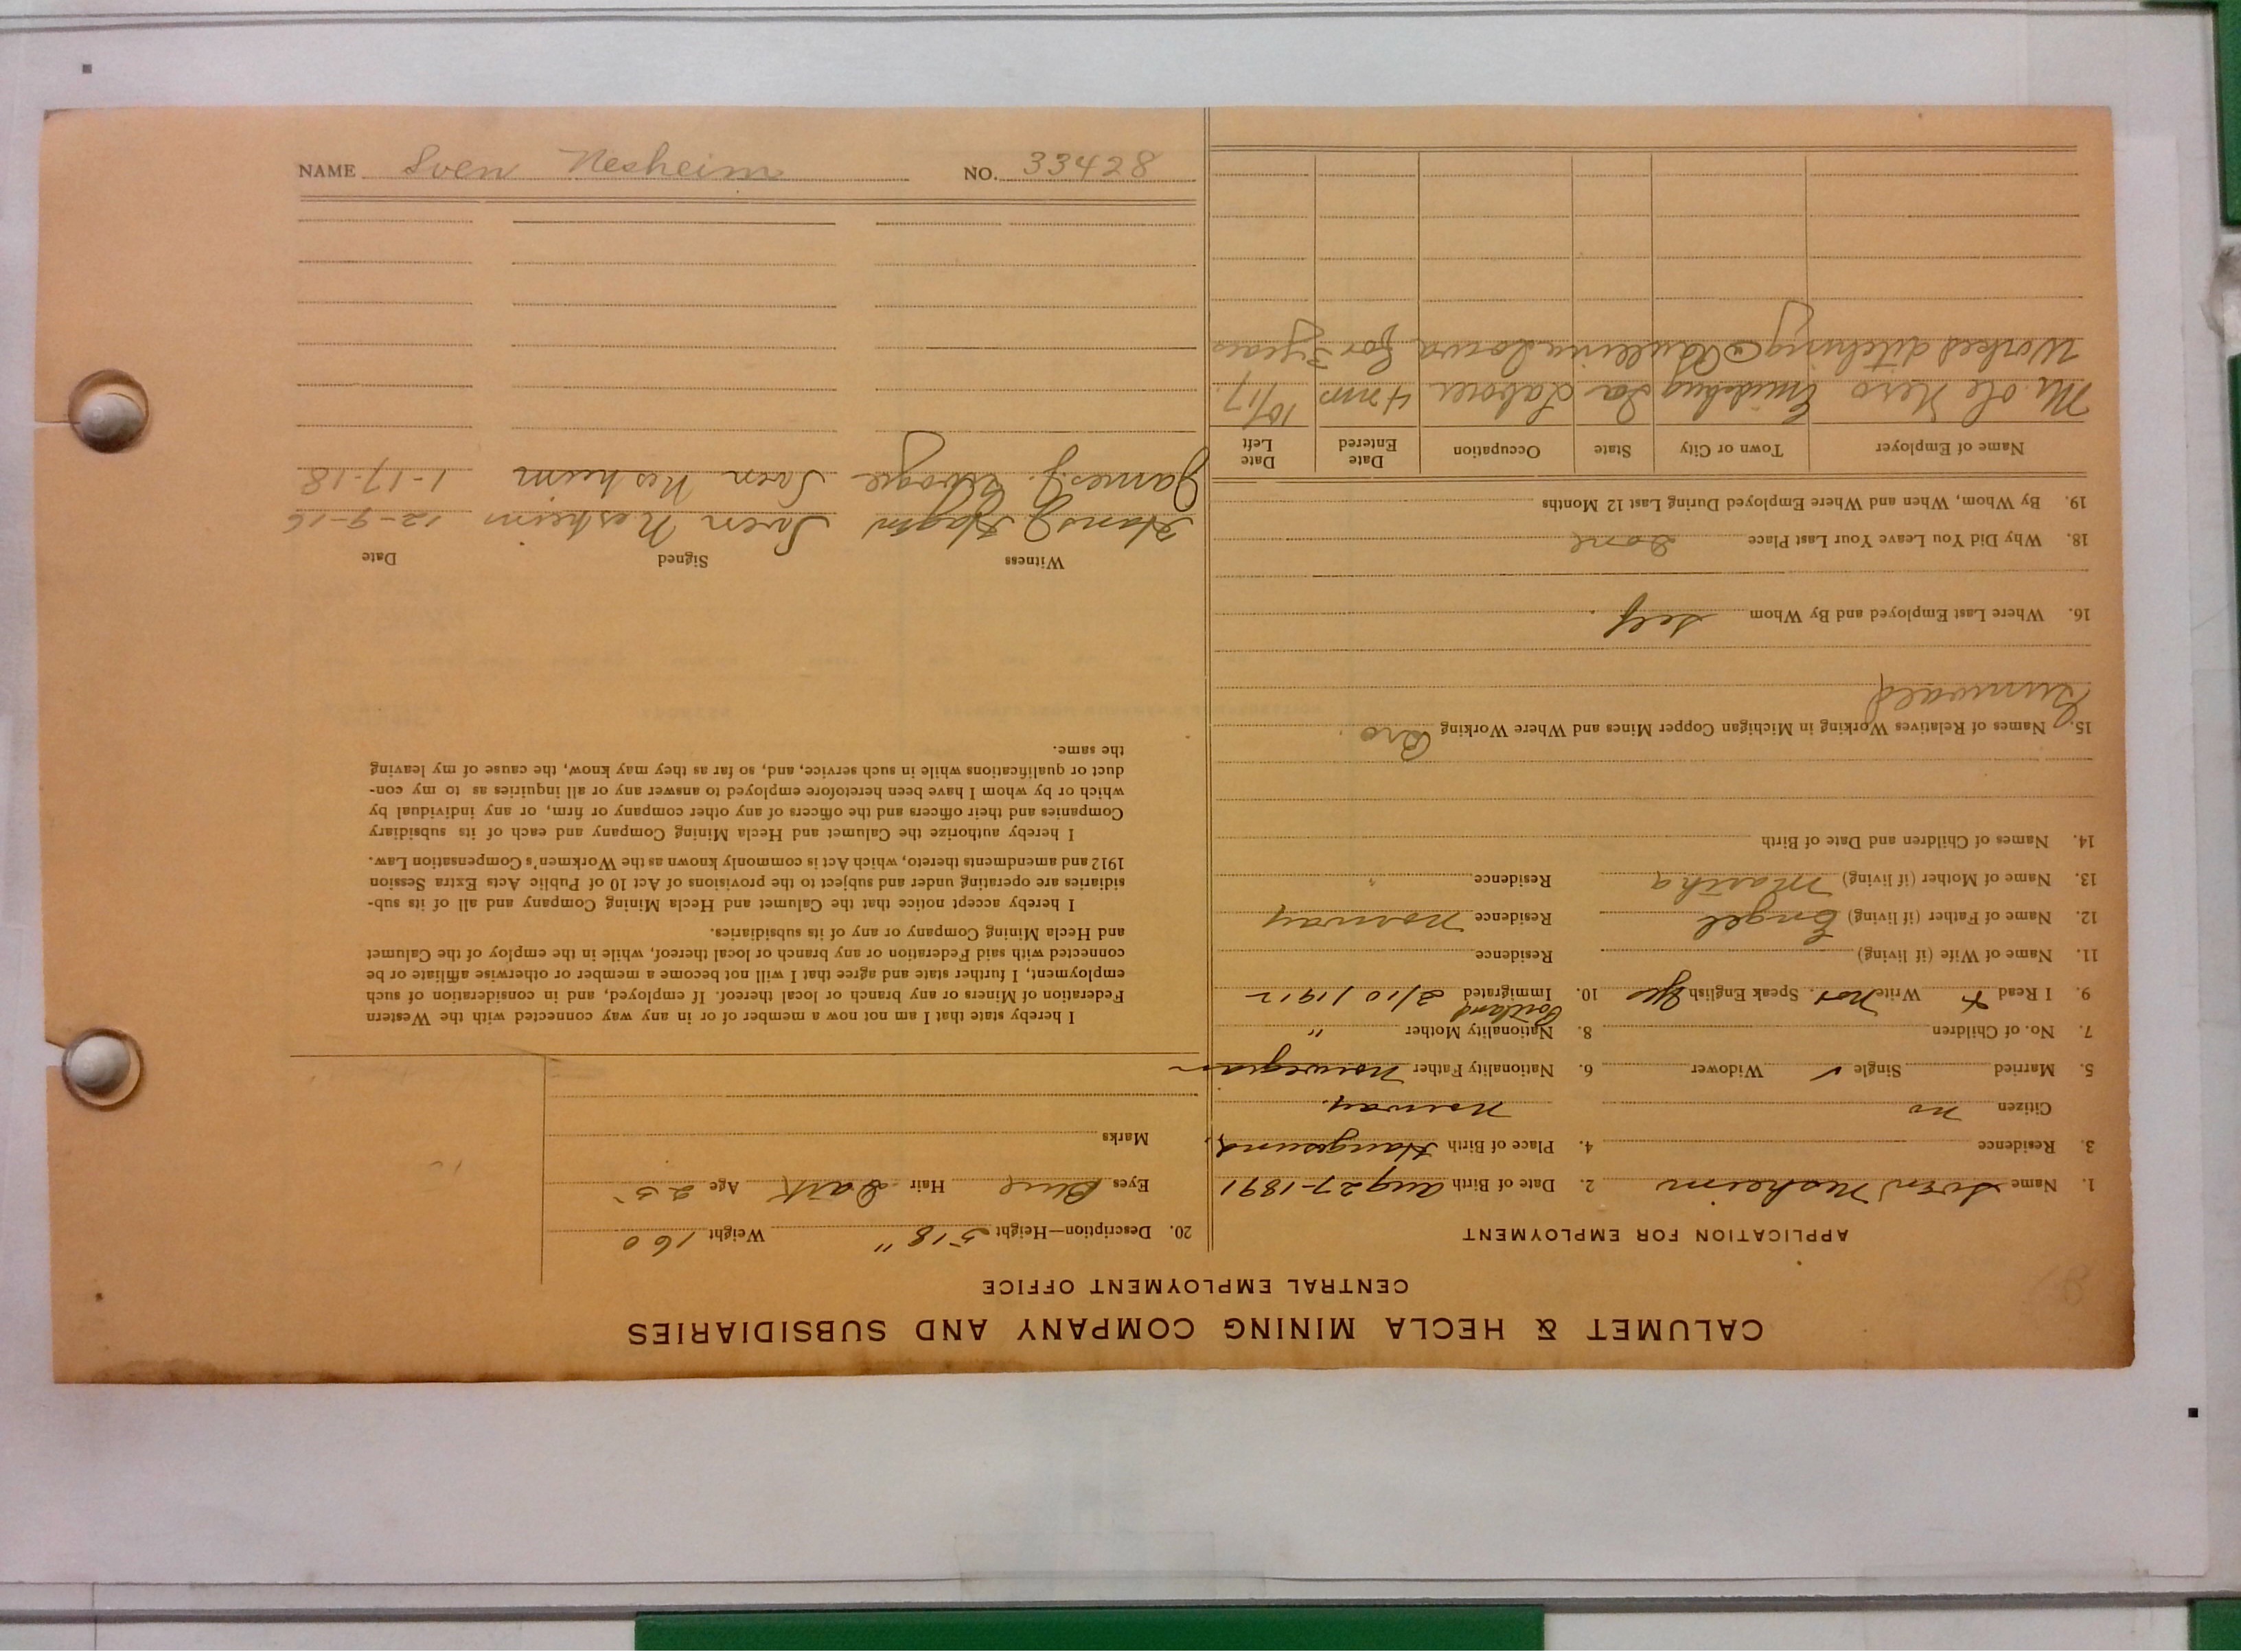 CALUMET & HECLA MINING COMPANY AND SUBSIDIARIES
CENTRAL EMPLOYMENT OFFICE
APPLICATION FOR EMPLOYMENT
1. Name Sven Nesheim 2. Date of Birth Aug 27-1891
3. Residence 4. Place of Birth Haugesund,
Citizen no Norway.
5. Married Single ✓ Widower 6. Nationality Father Norwegian
7. No. of Children 8. Nationality Mother "
Portland
9. I Read + Write Nor. Speak English Yes 10. Immigrated 2/10/1912
11. Name of Wife (if living) Residence
12. Name of Father (if living) Engel Residence Norway
13. Name of Mother (if living) Martha Residence "
14. Names of Children and Date of Birth
15. Names of Relatives Working in Michigan Copper Mines and Where Working Bro
Gunwald
16. Where Last Employed and By Whom self.
18. Why Did You Leave Your Last Place Done
19. By Whom, When and Where Employed During Last 12 Months
Name of Employer Town or City State Occupation Date Entered Date Left
Mr. Ole Nero Ia Laborer 4 mos 10/17.
Worked ditching @ Iowa for 3 years
20. Description—Height 5'8" Weight 160
Eyes Blue Hair Dark Age 25
Marks
I hereby state that I am not now a member of or in any way connected with the Western
Federation of Miners or any branch or local thereof. If employed, and in consideration of such
employment, I further state and agree that I will not become a member or otherwise affiliate or be
connected with said Federation or any branch or local thereof, while in the employ of the Calumet
and Hecla Mining Company or any of its subsidiaries.
I hereby accept notice that the Calumet and Hecla Mining Company and all of its sub-
sidiaries are operating under and subject to the provisions of Act 10 of Public Acts Extra Session
1912 and amendments thereto, which Act is commonly known as the Workmen's Compensation Law.
I hereby authorize the Calumet and Hecla Mining Company and each of its subsidiary
Companies and their officers and the officers of any other company or firm, or any individual by
which or by whom I have been heretofore employed to answer any or all inquiries as to my con-
duct or qualifications while in such service, and, so far as they may know, the cause of my leaving
the same.
Witness Signed Date
Hans J. Hagen Sven Nesheim 12-9-16
James J. Sven Nesheim 1-17-18
NAME Sven Nesheim NO. 33428